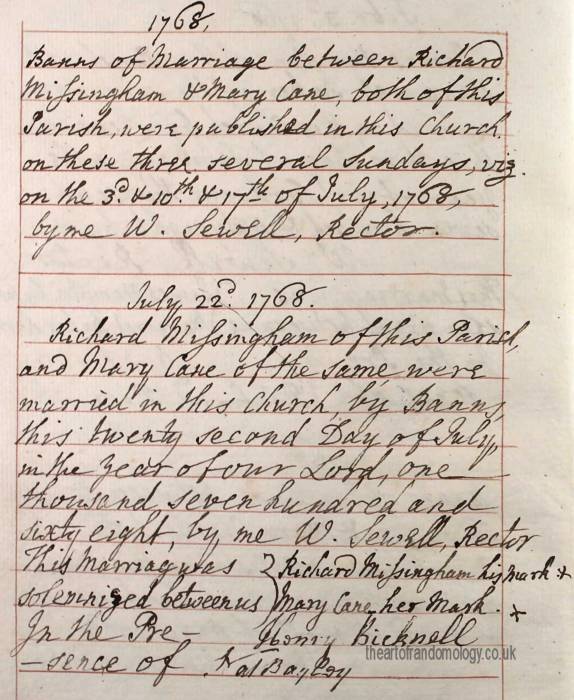 1768,
Banns of Marriage between Richard
Missingham & Mary Cane, both of this
Parish, were published in this Church
on these three several Sundays, viz.
on the 3d. & 10th. & 17th of July, 1768,
by me W. Sewell, Rector.
July 22d. 1768.
Richard Missingham of this Parish,
and Mary Cane of the same, were
married in this Church, by Banns,
this twenty second Day of July,
in the Year of our Lord, one
thousand, seven hundred and
sixty eight, by me W. Sewell, Rector
This Marriage was } Richard Missingham his Mark. +
solemnized between us } Mary Cane her Mark. +
In the Pre- Henry Bicknell
-sence of Nat Bayley
theartofrandomology.co.uk